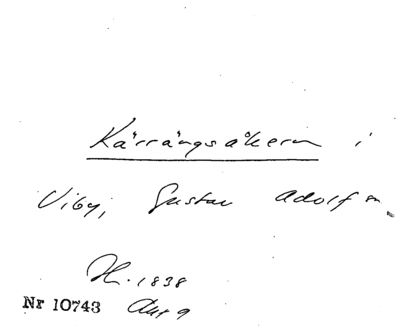 Kärrängsåkern i
Viby, Gustav Adolf sn.
H. 1838
Nr 10743